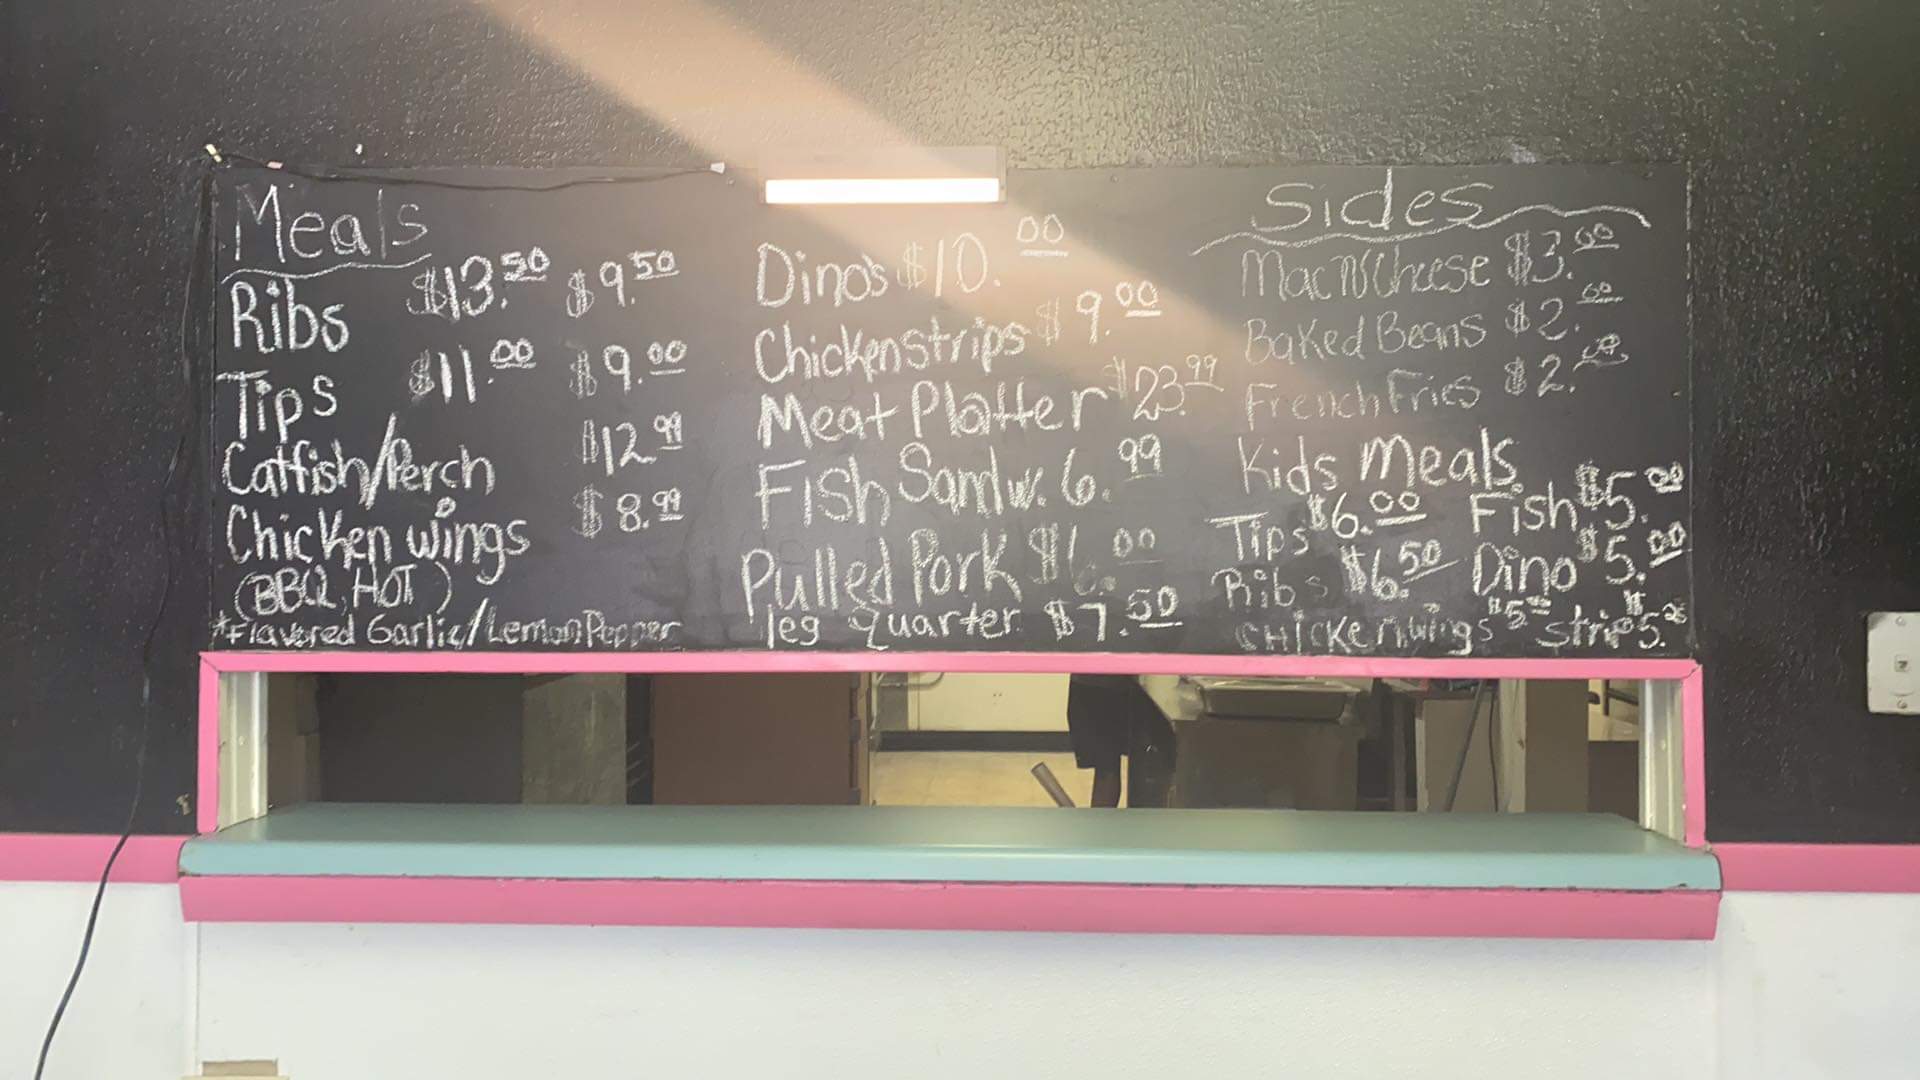 Meals
Ribs $13.50 $9.50
Tips $11.00 $9.00
Catfish/Perch $12.99
Chicken wings $8.99
(BBQ, HOT)
*Flavored Garlic/Lemon Pepper
Dino's $10.00
Chicken strips $9.00
Meat Platter $23.99
Fish Sandw. 6.99
Pulled Pork $6.00
leg quarter $7.50
Sides
Mac N Cheese $3.00
Baked Beans $2.00
French Fries $2.00
Kids Meals
Tips $6.00 Fish $5.00
Ribs $6.50 Dino $5.00
CHicken wings Strip